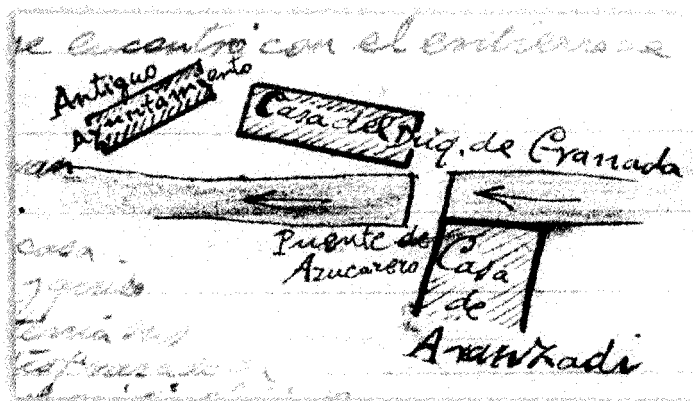 se encontró con el entierro de
Antiguo
Ayuntamiento
Casa del Duq. de Granada
Puente de
Azucarero
Casa
de
Aranzadi
casa